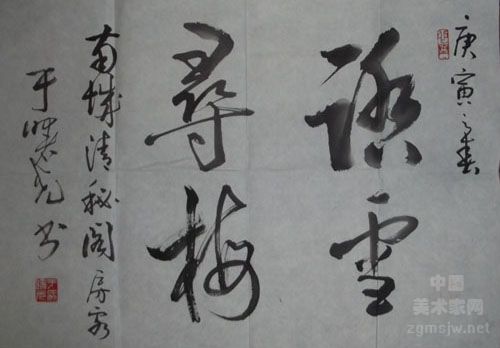 庚寅之春
踏雪
尋梅
南城清秘阁房客
于曙光书
中国
美术家网
zgmsjw.net